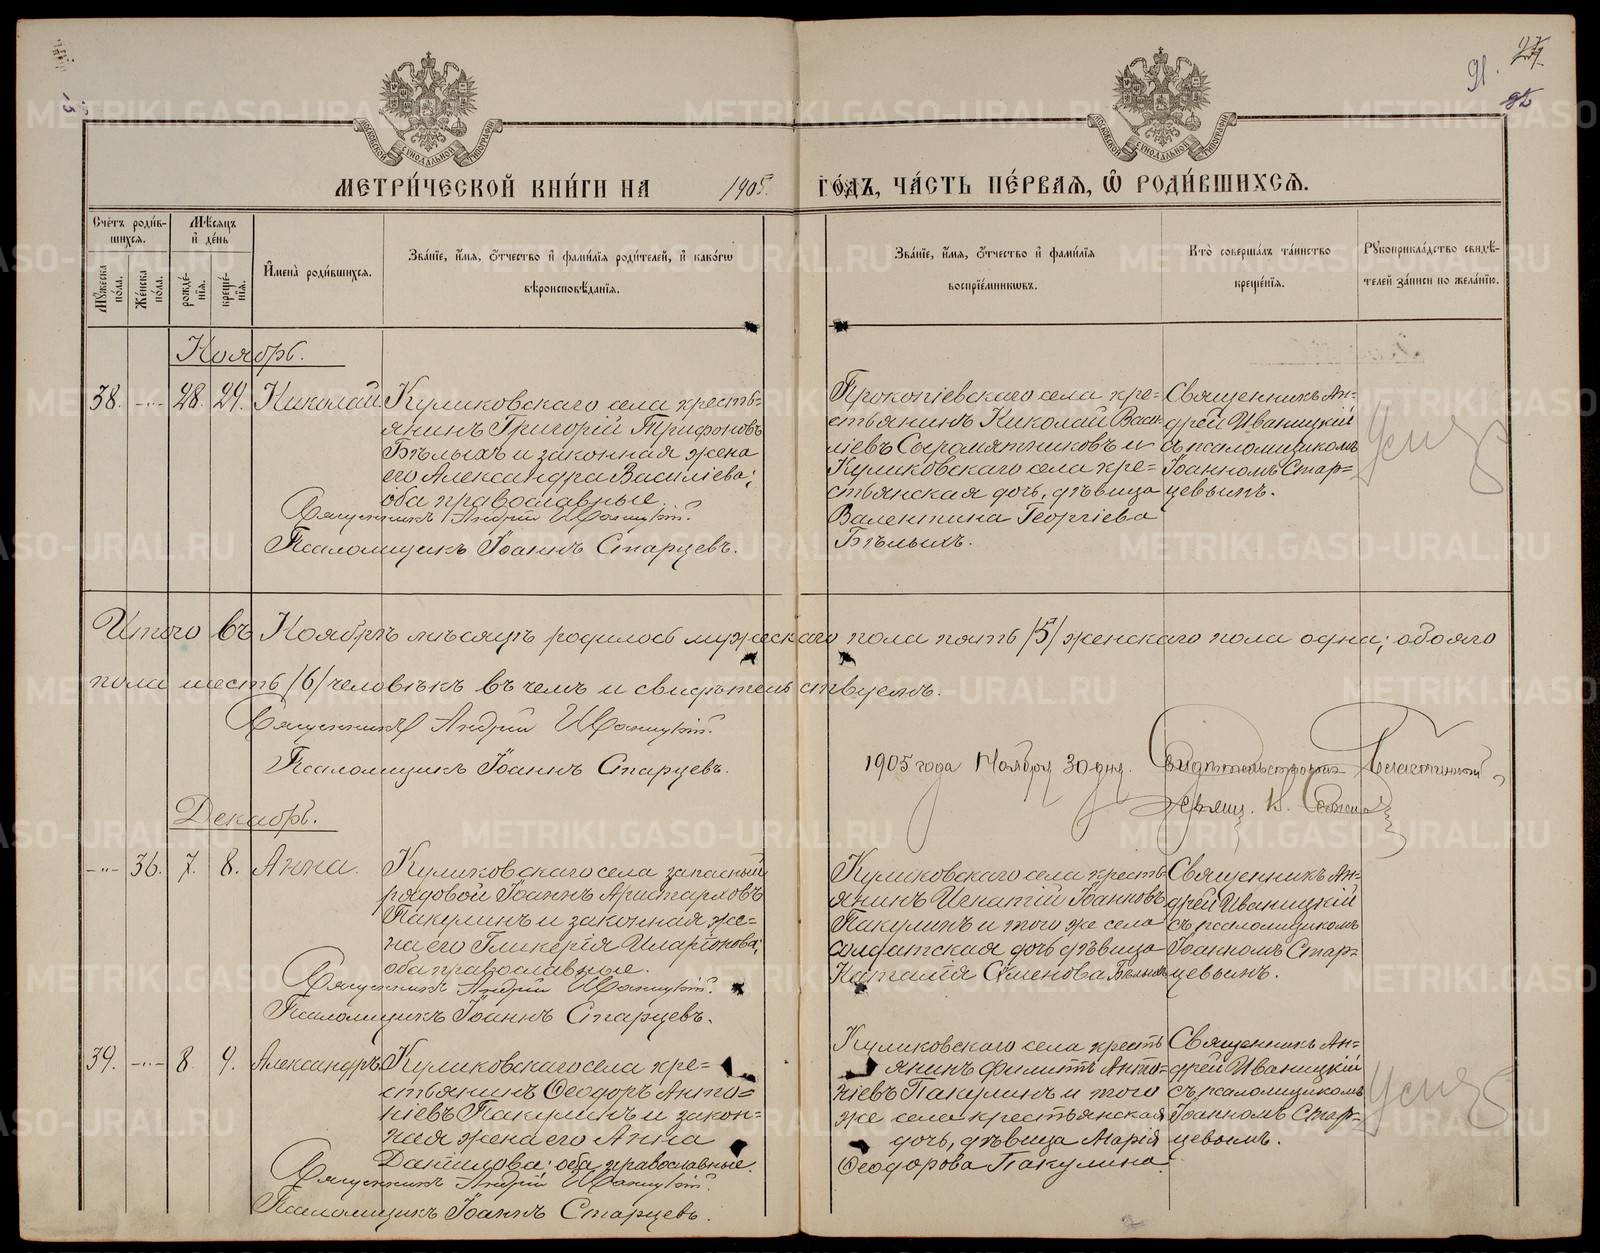 91. 27
92
МЕТРИ́ЧЕСКОЙ КНИ́ГИ НА 1905. ГО́ДЪ, ЧА́СТЬ ПЕ́РВАЯ, Ѡ РОДИ́ВШИХСЯ.
Счётъ роди́вшихся.
Му́жеска по́ла.
Же́нска по́ла.
Мѣ́сяцъ и де́нь
рожде́нїя.
креще́нїя.
Имена̀ роди́вшихся.
Зва́нїе, и́мя, о́тчество и фами́лїя роди́телей, и како́гѡ
вѣроисповѣ́данїя.
Зва́нїе, и́мя, о́тчество и фами́лїя
воспрїе́мникѡвъ.
Кто̀ соверша́лъ та́инство
креще́нїя.
Рукоприкла́дство свидѣ́-
телей за́писи по жела́нїю.
Ноябрь.
38. -"- 28. 29. Николай.
Куликовскаго села кресть=
янинъ Григорій Трифоновъ
Бѣлыхъ и законная жена
его Александра Василіева;
оба православные.
Священникъ Андрей Иваницкій.
Псаломщикъ Іоаннъ Старцевъ.
Прокопіевскаго села кре=
стьянинъ Николай Васи-
ліевъ Сыромятниковъ и
Куликовскаго села кре=
стьянская дочь, дѣвица
Валентина Георгіева
Бѣлыхъ.
Священникъ Ан-
дрей Иваницкій
съ псаломщикомъ
Іоанномъ Стар=
цевымъ.
Итого въ Ноябрѣ мѣсяцѣ родилось мужескаго пола пять /5/ женскаго пола одна; обоего
пола шесть /6/ человѣкъ въ чемъ и свидѣтельствуемъ.
Священникъ Андрей Иваницкій.
Псаломщикъ Іоаннъ Старцевъ.
1905 года Ноября 30 дня. Свидѣтельствовалъ Благочинный
Священ. В.
Декабрь.
-"- 36. 7. 8. Анна.
Куликовскаго села запасный
рядовой Іоаннъ Аристарховъ
Пакулинъ и законная же=
на его Гликерія Иларіонова;
оба православные.
Священникъ Андрей Иваницкій.
Псаломщикъ Іоаннъ Старцевъ.
Куликовскаго села кресть
янинъ Игнатій Іоанновъ
Пакулинъ и того же села
солдатская дочь дѣвица
Наталія Семенова Бѣлыхъ
Священникъ Ан=
дрей Иваницкій
съ псаломщикомъ
Іоанномъ Стар=
цевымъ.
39. -"- 8. 9. Александръ
Куликовскаго села кре=
стьянинъ Ѳеодоръ Анто=
ніевъ Пакулинъ и закон=
ная жена его Анна
Даніилова; оба православные.
Священникъ Андрей Иваницкій.
Псаломщикъ Іоаннъ Старцевъ.
Куликовскаго села кресть
янинъ Филиппъ Анто=
ніевъ Пакулинъ и того
же села крестьянская
дочь, дѣвица Марія
Ѳеодорова Пакулина.
Священникъ Ан=
дрей Иваницкій
съ псаломщикомъ
Іоанномъ Стар=
цевымъ.
METRIKI.GASO-URAL.RU